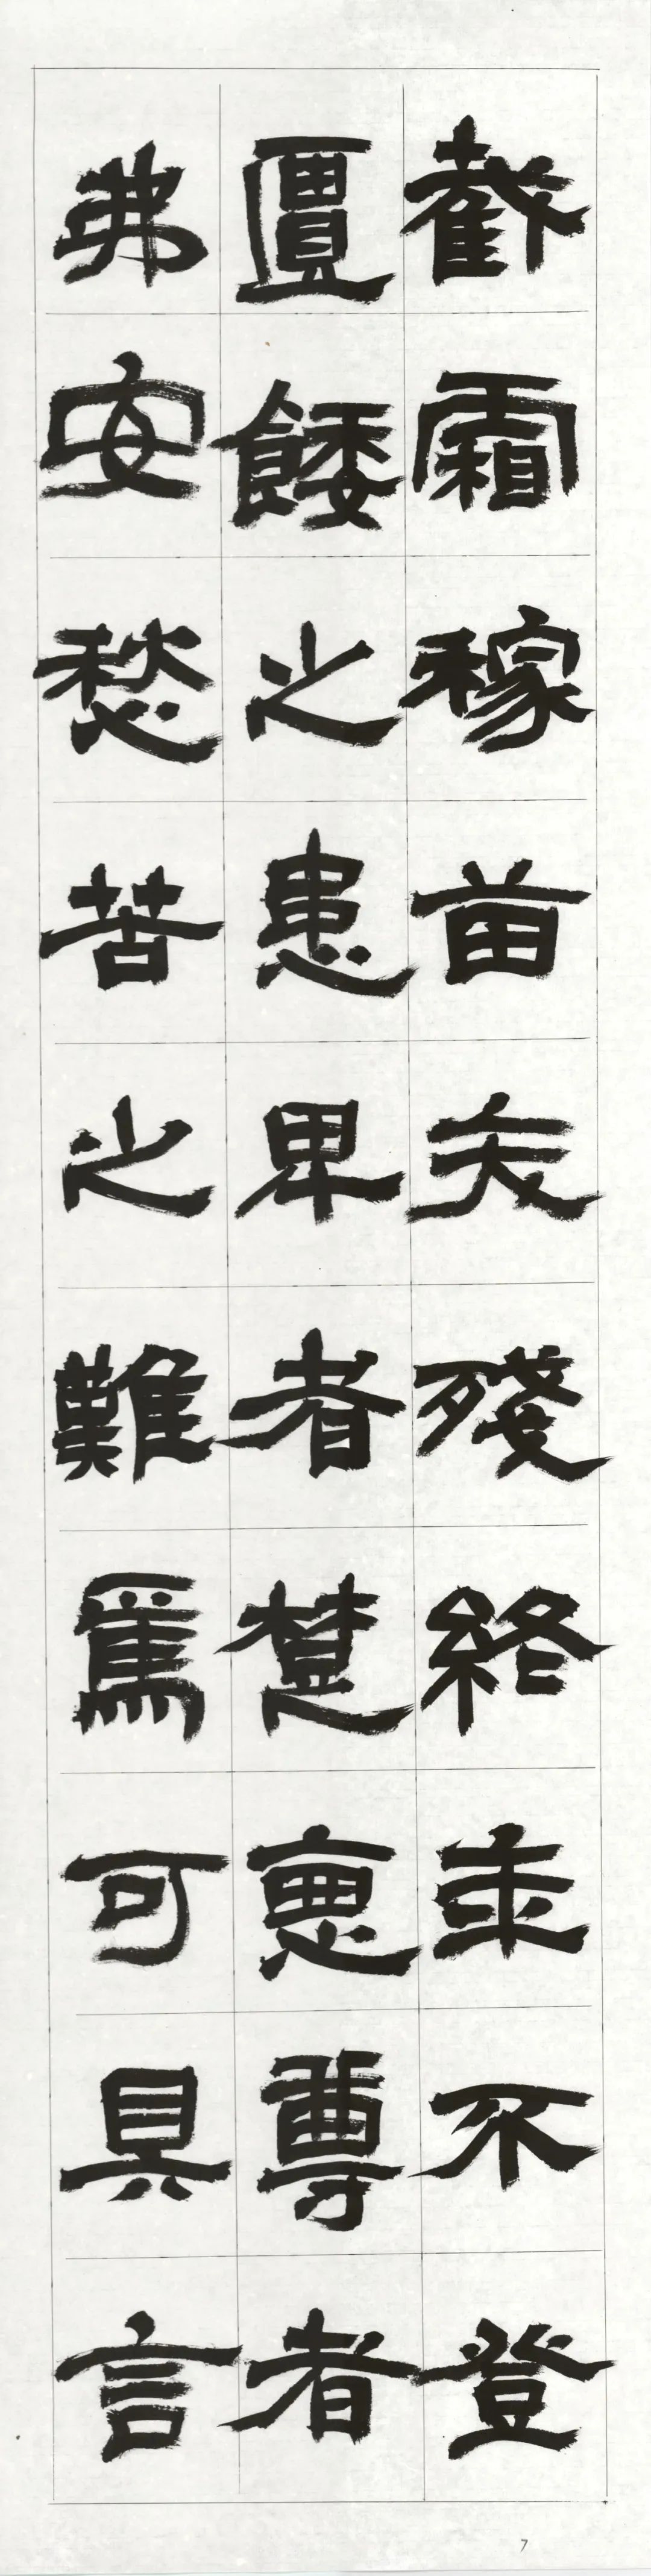 截霜稼苗夭殘終年不登
匱餧之患卑者楚惡尊者
弗安愁苦之難焉可具言
7